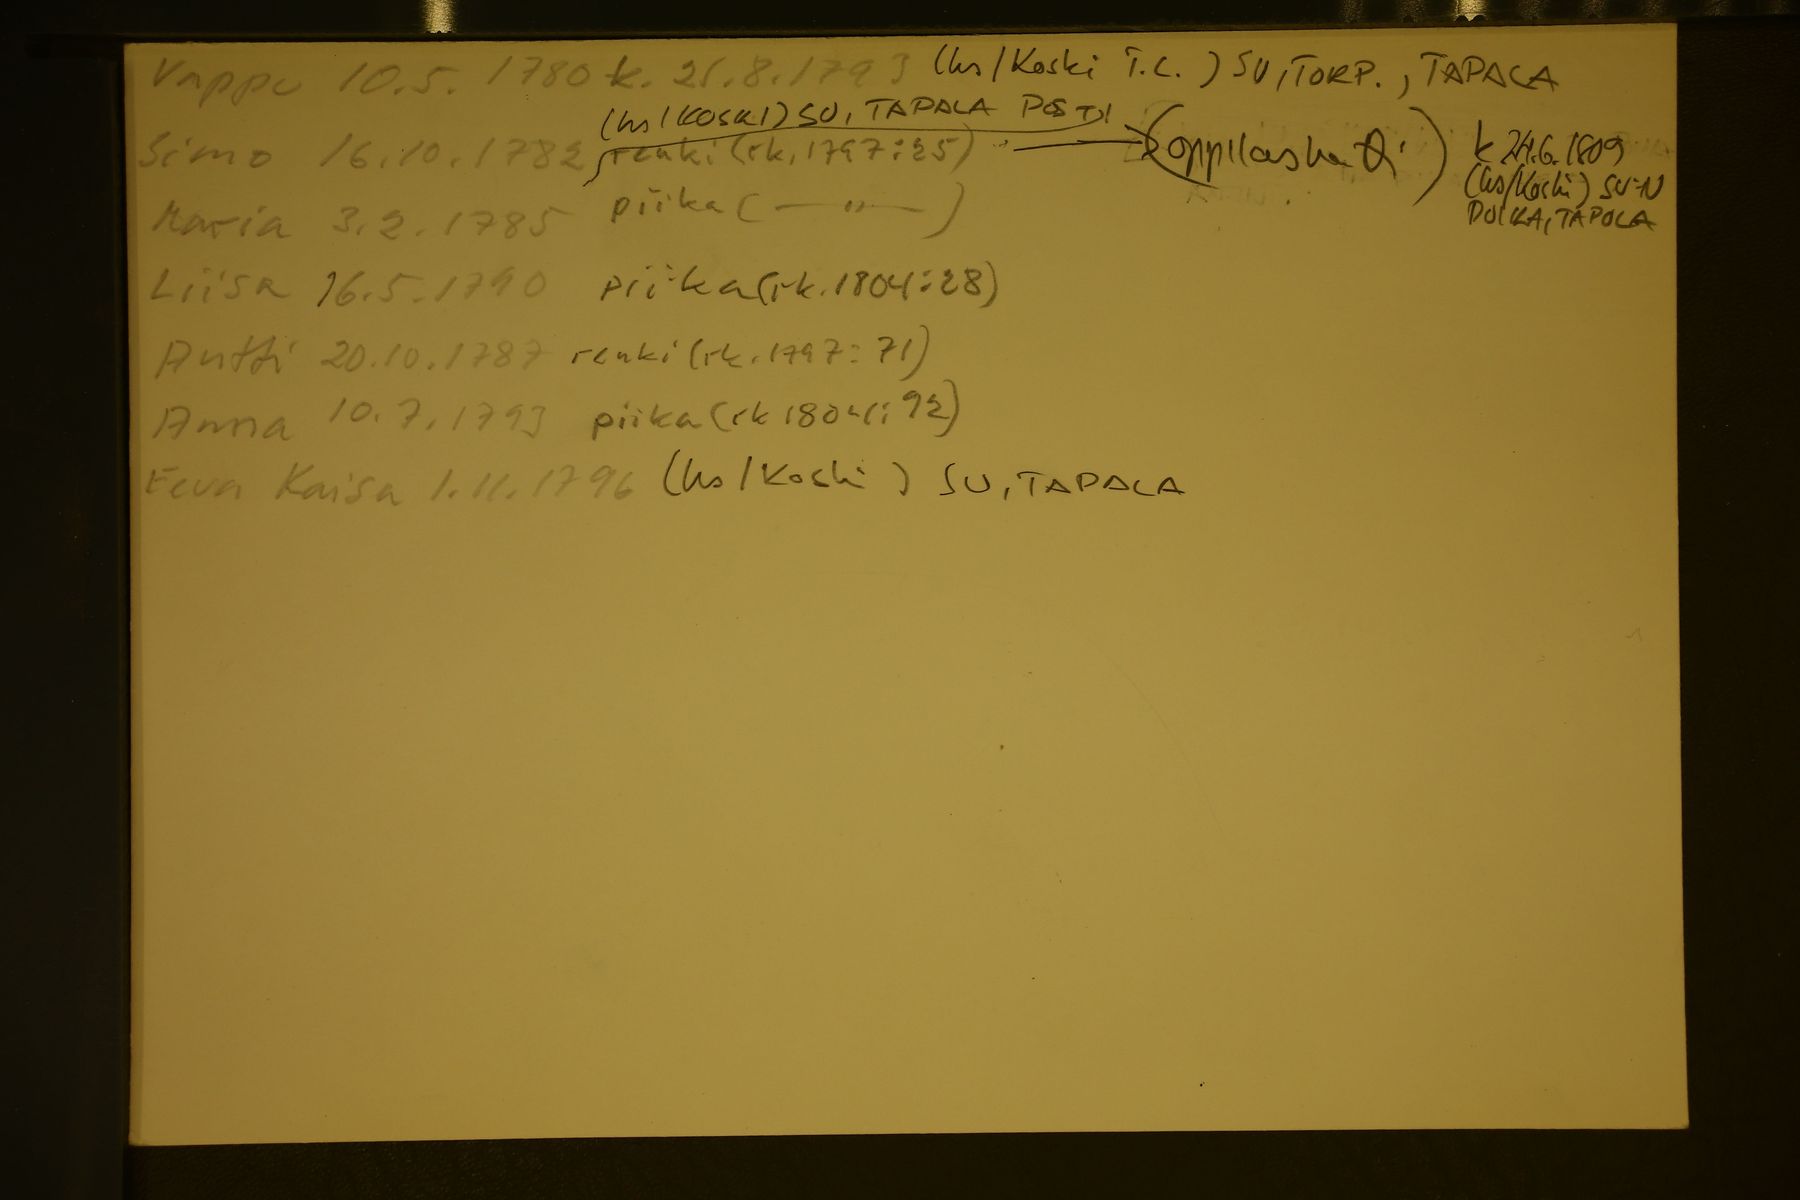 Vappu 10.5.1780 k. 21.8.1793 (hs/Koski T.L.) SU, TORP., TAPALA
(hs/KOSKI) SU, TAPALA POSTI
Simo 16.10.1782 renki (rk. 1797:25) k 24.6.1809
(hs/Koski) SU:N
POIKA, TAPOLA
Maria 3.2.1785 piika ( — " — )
Liisa 16.5.1790 piika (rk. 1804:28)
Antti 20.10.1787 renki (rk. 1797:71)
Anna 10.7.1793 piika (rk 1804:92)
Eeva Kaisa 1.11.1796 (hs/Koski) SU, TAPALA